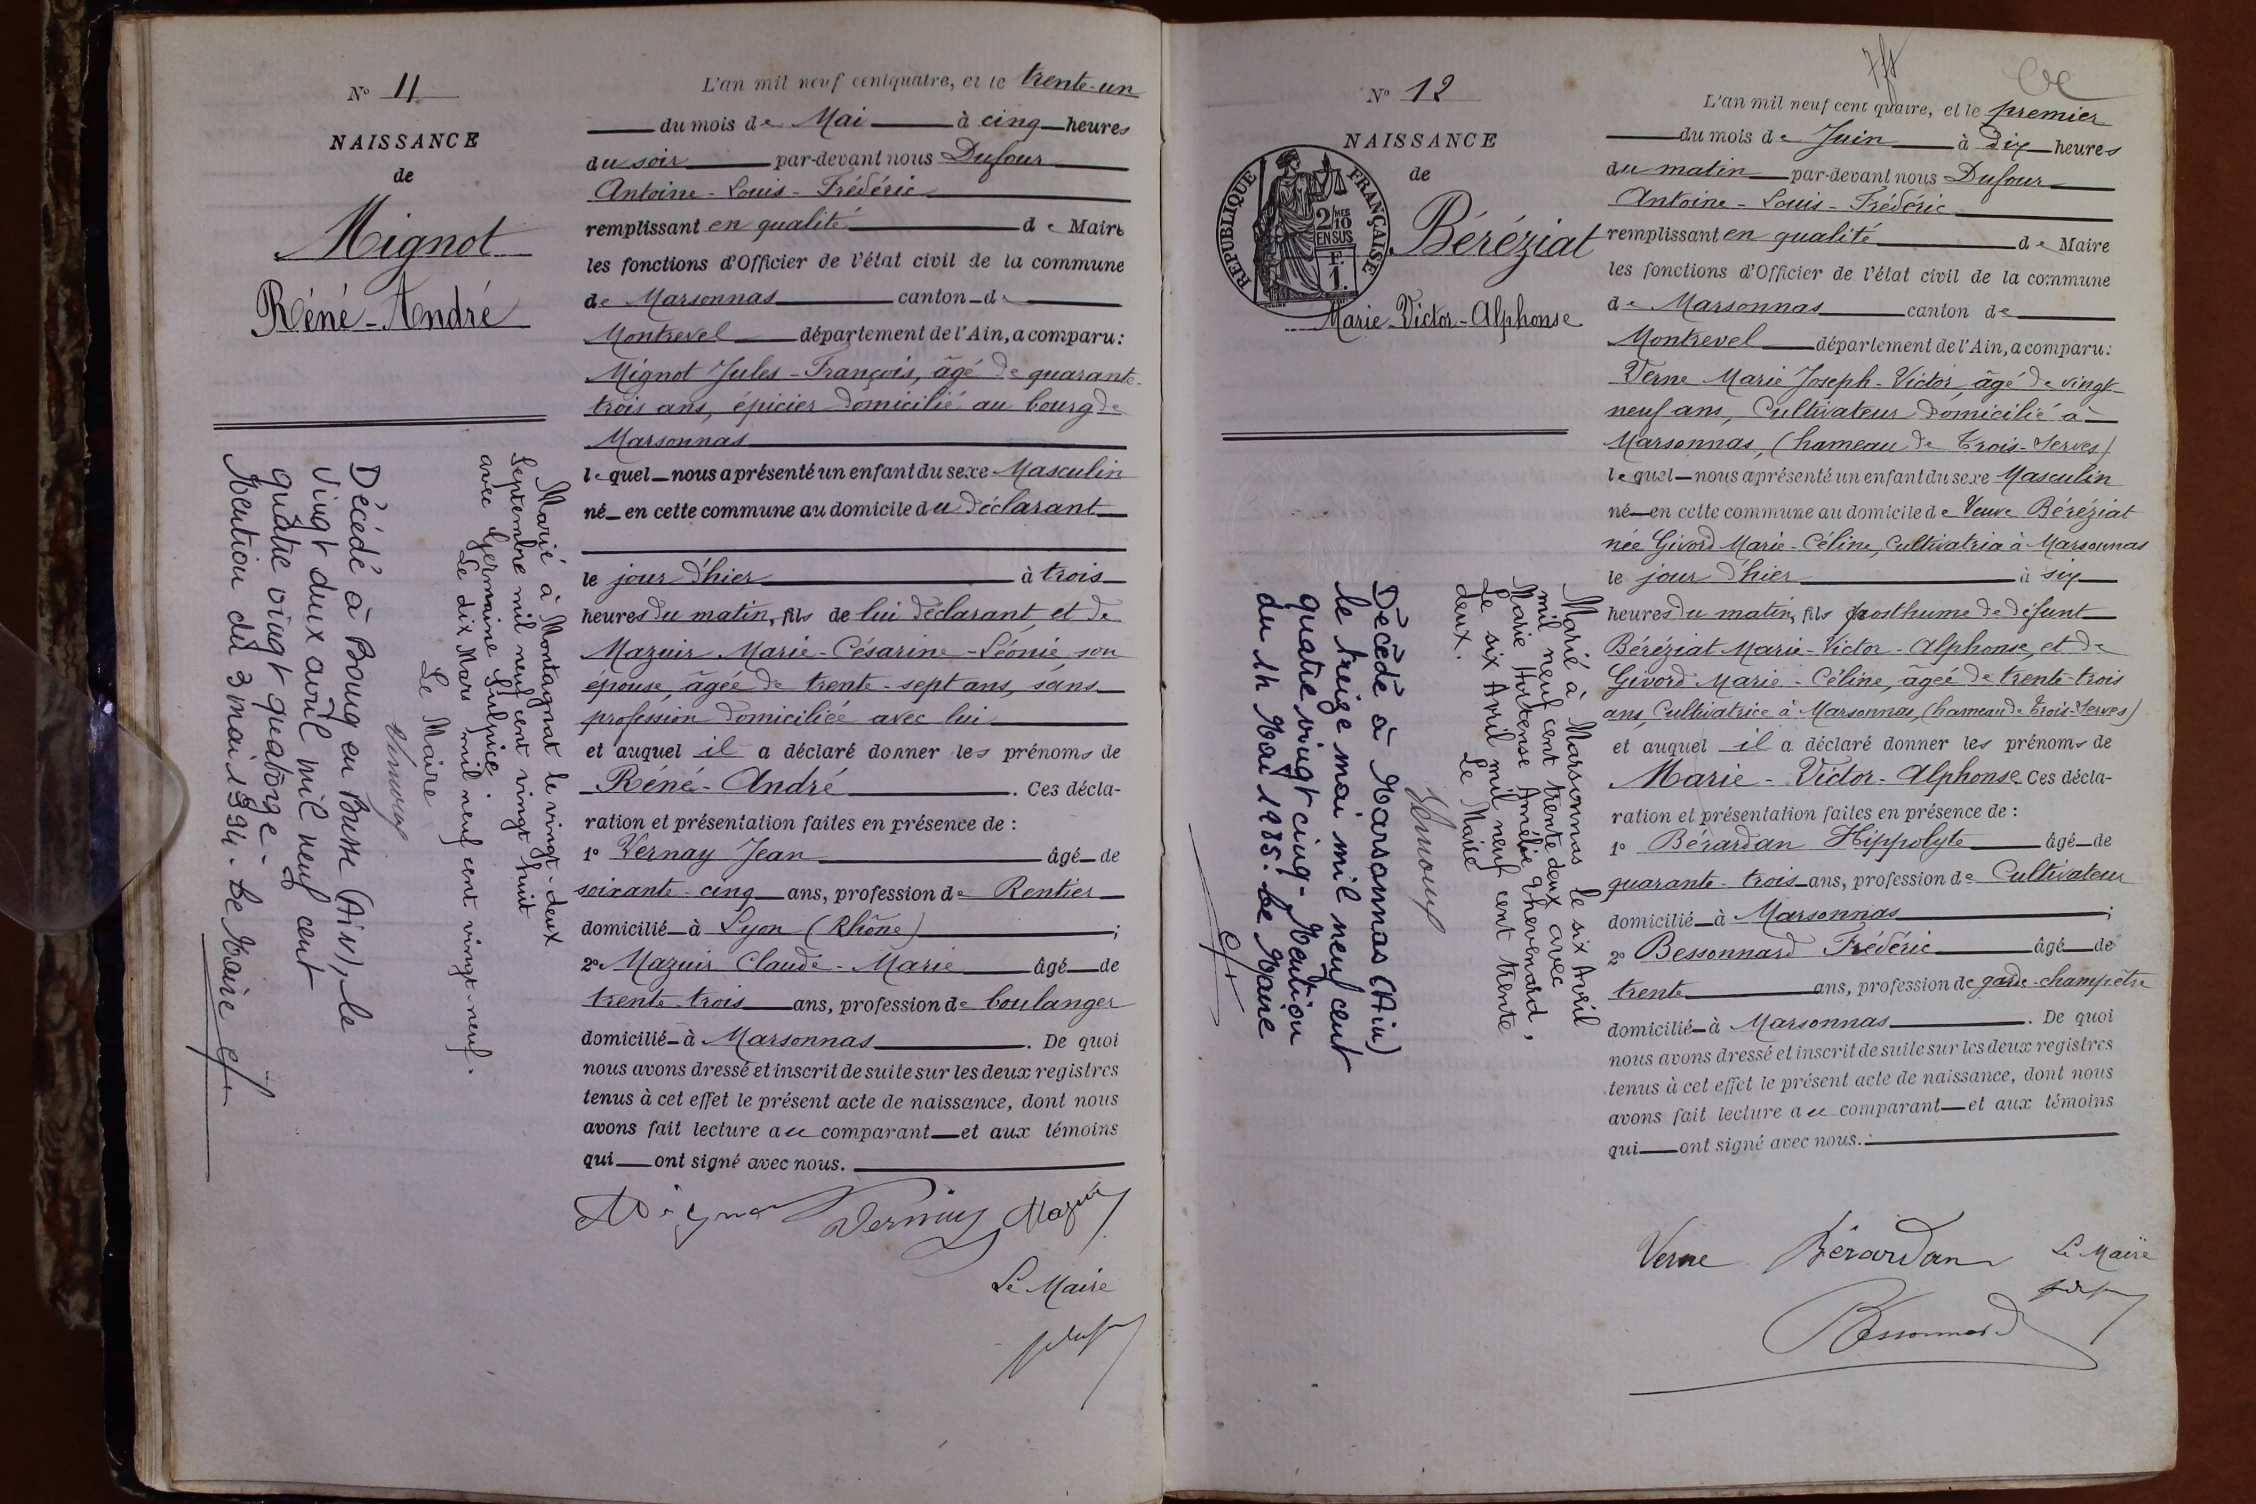 N° 11
NAISSANCE
de
Mignot
Réné-André
Marié à Montagnat le vingt-deux
Septembre mil neuf cent vingt huit
avec Germaine Sulpice.
Le dix Mars mil neuf cent vingt-neuf.
Le Maire
Décédé à Bourg en Bresse (Ain), le
vingt deux avril mil neuf cent
quatre vingt quatorze-
Mention du 3 mai 1994. Le Maire
L'an mil neuf cent quatre, et le trente-un
du mois de Mai à cinq heures
du soir par-devant nous Dufour
Antoine-Louis-Frédéric
remplissant en qualité de Maire
les fonctions d'Officier de l'état civil de la commune
de Marsonnas canton de
Montrevel département de l'Ain, a comparu:
Mignot Jules-François, âgé de quarante-
trois ans, épicier domicilié au bourg de
Marsonnas
lequel nous a présenté un enfant du sexe Masculin
né en cette commune au domicile du déclarant
le jour d'hier à trois
heures du matin, fils de lui déclarant et de
Mazuir Marie-Césarine-Léonie son
épouse, âgée de trente-sept ans, sans
profession domiciliée avec lui
et auquel il a déclaré donner les prénoms de
Réné-André. Ces décla-
ration et présentation faites en présence de:
1° Vernay Jean âgé de
soixante-cinq ans, profession de Rentier
domicilié à Lyon (Rhône);
2° Mazuir Claude-Marie âgé de
trente-trois ans, profession de boulanger
domicilié à Marsonnas. De quoi
nous avons dressé et inscrit de suite sur les deux registres
tenus à cet effet le présent acte de naissance, dont nous
avons fait lecture au comparant et aux témoins
qui ont signé avec nous.
Mignot Vernay Mazuir
Le Maire
N° 12
NAISSANCE
de
Béréziat
Marie-Victor-Alphonse
REPUBLIQUE FRANÇAISE
2/10
EN SUS
F.
1.
Marié à Marsonnas le six Avril
mil neuf cent trente deux avec
Marie Hortense Amélie Chevenard,
Le six Avril mil neuf cent trente
deux. Le Maire
Décédé à Marsonnas (Ain)
le treize mai mil neuf cent
quatre vingt cinq- Mention
du 14 Mai 1985. Le Maire
L'an mil neuf cent quatre, et le premier
du mois de Juin à Dix heures
du matin par-devant nous Dufour
Antoine-Louis-Frédéric
remplissant en qualité de Maire
les fonctions d'Officier de l'état civil de la commune
de Marsonnas canton de
Montrevel département de l'Ain, a comparu:
Verne Marie Joseph-Victor, âgé de vingt-
neuf ans, Cultivateur domicilié à
Marsonnas, (hameau de Trois-Serves)
lequel nous a présenté un enfant du sexe Masculin
né en cette commune au domicile de Veuve Béréziat
née Givord Marie-Céline, Cultivatrice à Marsonnas
le jour d'hier à six
heures du matin, fils posthume de défunt
Béréziat Marie-Victor-Alphonse, et de
Givord Marie-Céline, âgée de trente-trois
ans, Cultivatrice à Marsonnas, (hameau de Trois-Serves)
et auquel il a déclaré donner les prénoms de
Marie-Victor-Alphonse. Ces décla-
ration et présentation faites en présence de:
1° Bérardan Hippolyte âgé de
quarante-trois ans, profession de Cultivateur
domicilié à Marsonnas;
2° Bessonnard Frédéric âgé de
trente ans, profession de garde-champêtre
domicilié à Marsonnas. De quoi
nous avons dressé et inscrit de suite sur les deux registres
tenus à cet effet le présent acte de naissance, dont nous
avons fait lecture au comparant et aux témoins
qui ont signé avec nous.
Verne Bérardan Le Maire
Bessonnard